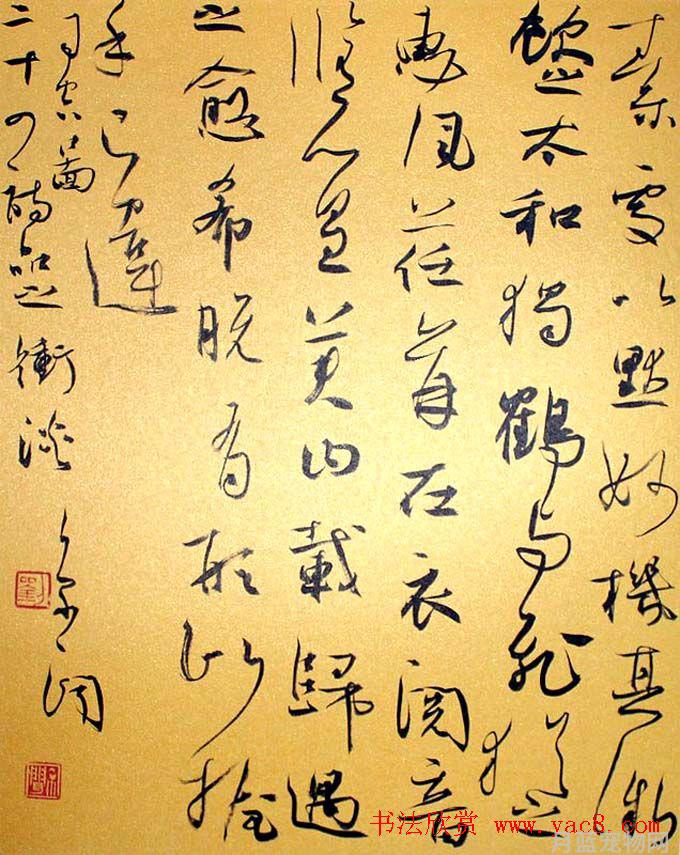 素處以默妙機其微
飲之太和獨鶴與飛猶之
惠風荏苒在衣閱音
脩篁美曰載歸遇
之愈希脫有形似握
手已違
司空圖
二十四詩品之衝淡
劉
书法欣赏 www.yac8.com
月蓝宠物网